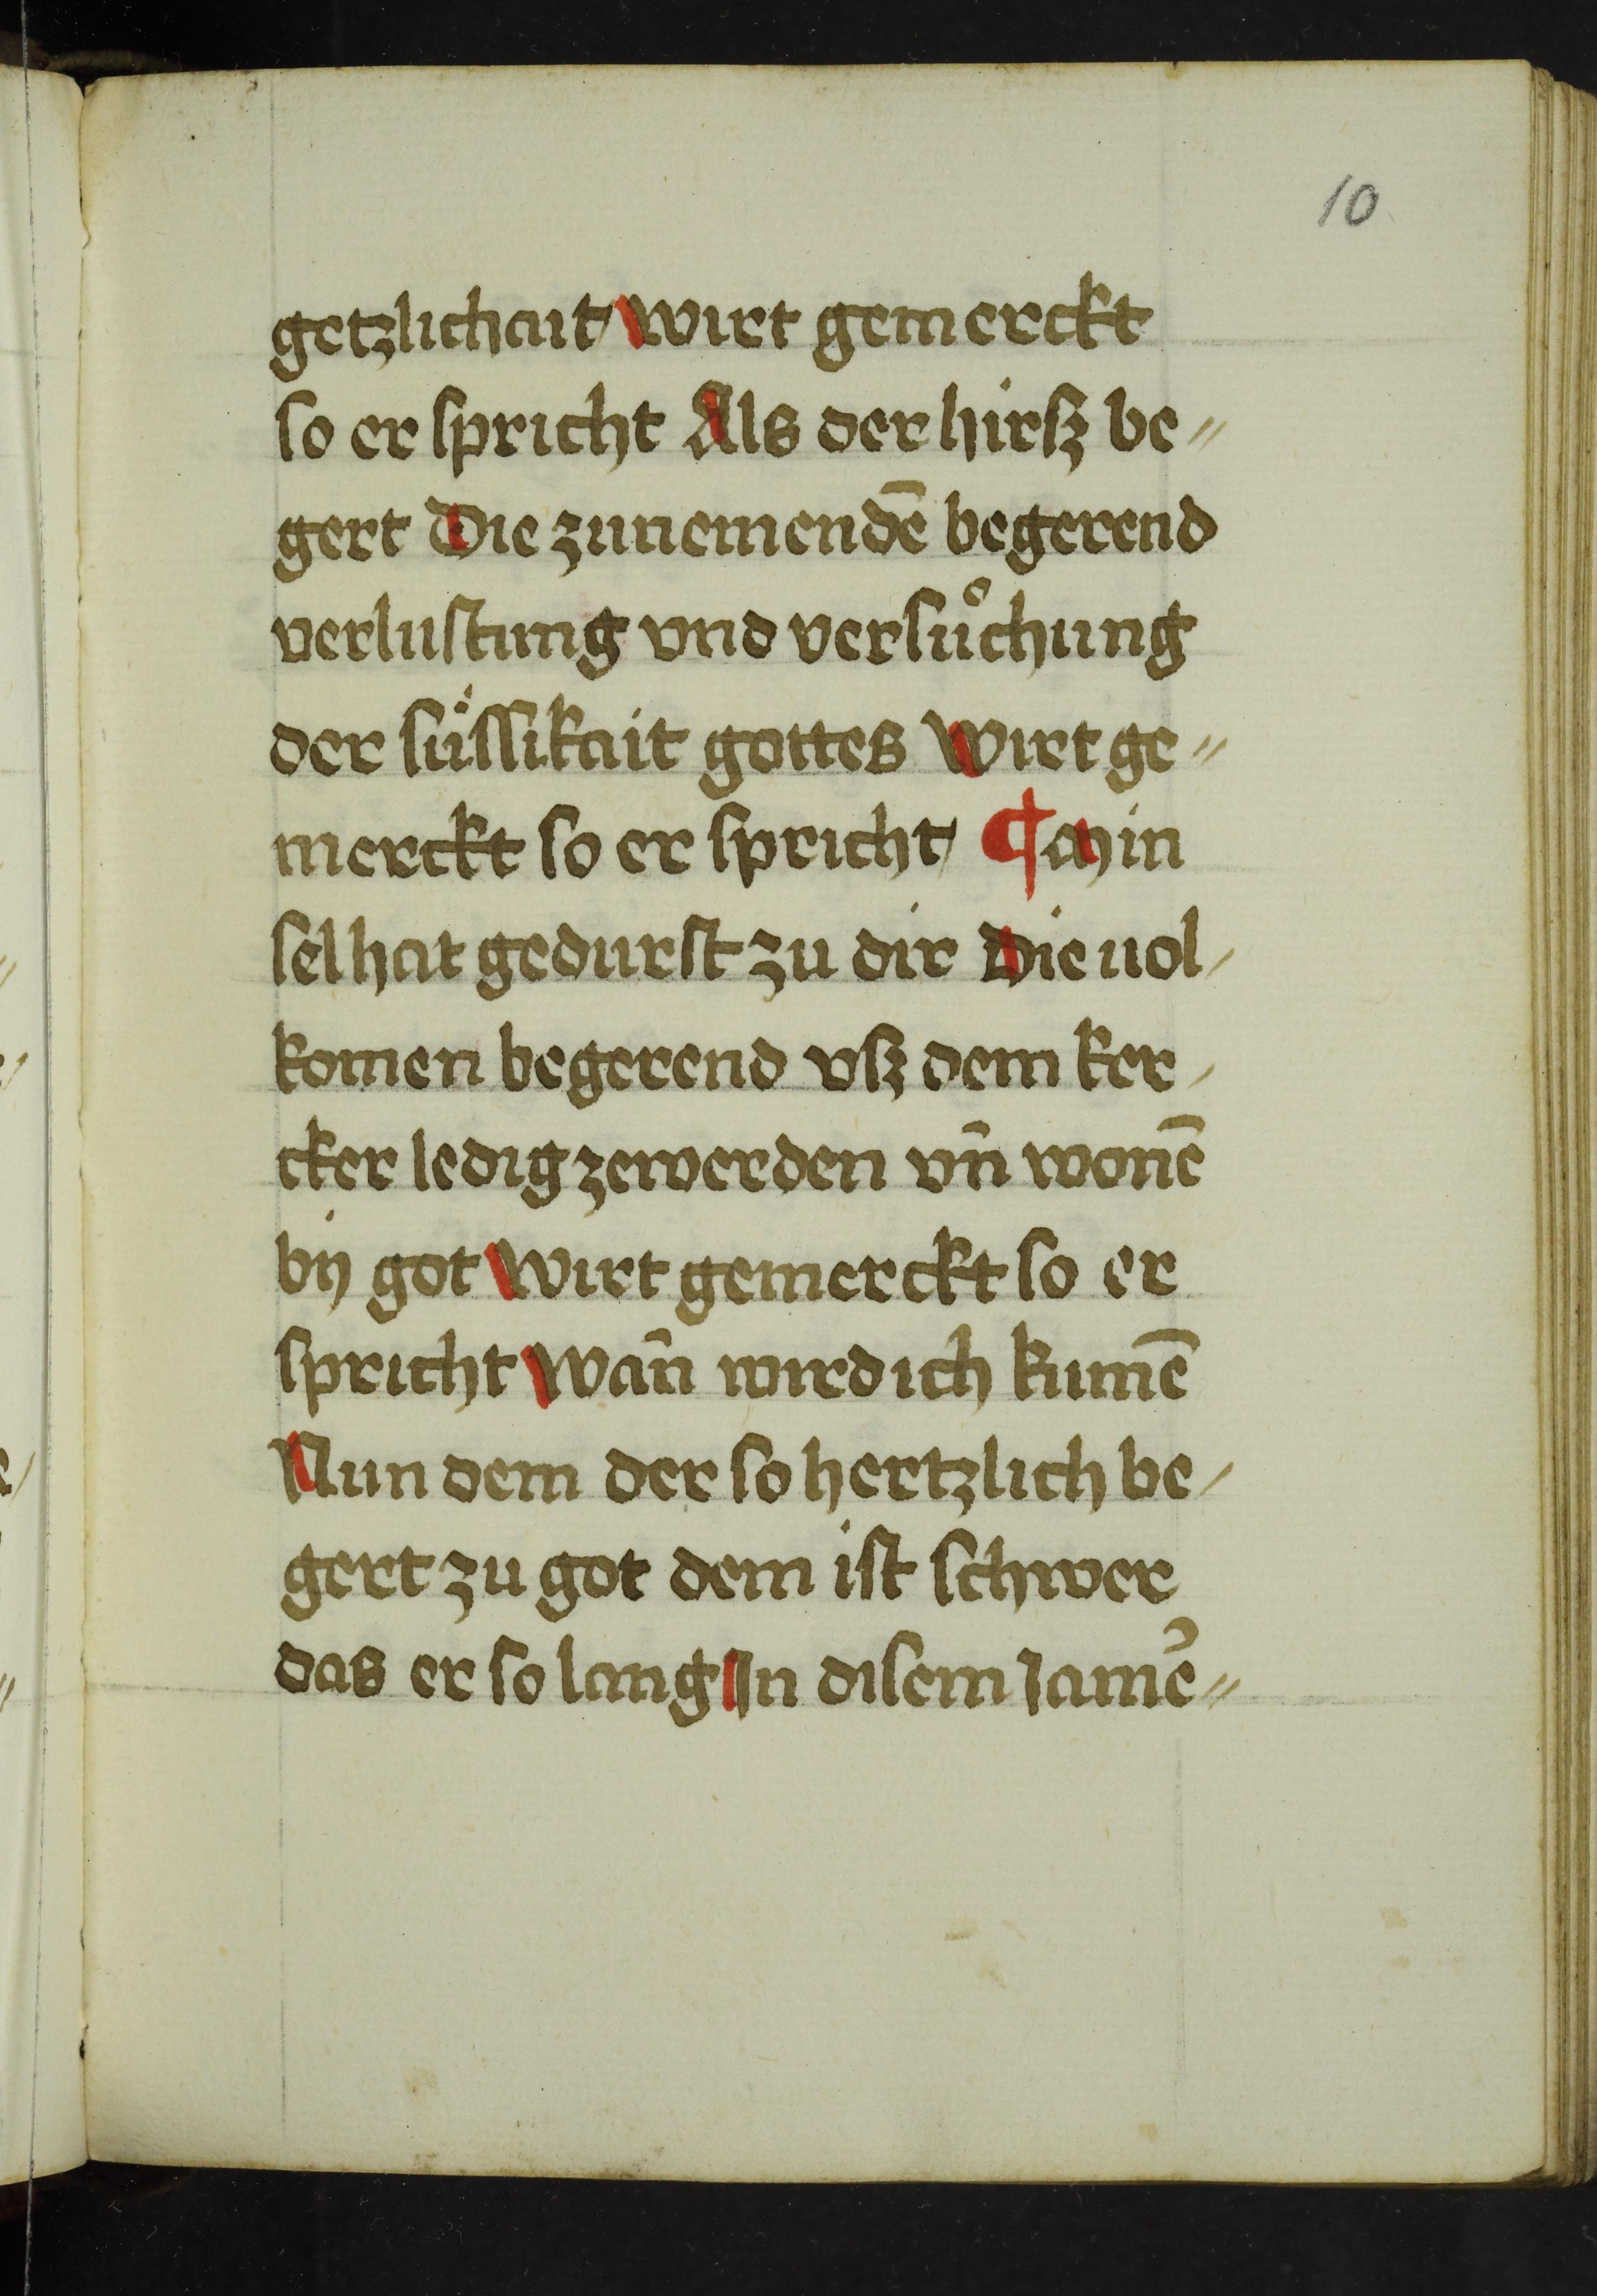 10
getzlichait / Wirt gemerckt
so er spricht Als der hirsz be〃
gert Die zunemendē begerend
verlustung vnd versuͦchung
der süssikait gottes Wirt ge〃
merckt so er spricht / ¶ Min
sel hat gedurst zu dir Die uol/
komen begerend vsz dem ker/
cker ledig zewerden vn̄ wonē
bij got Wirt gemerckt so er
spricht Wan̄ wird ich kumē
Nun dem der so hertzlich be/
gert zu got dem ist schwer
das er so lang In disem Jamer̛〃